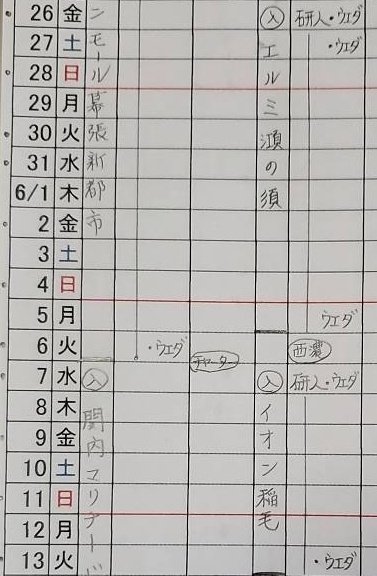 26 金 ン ㊅ 研入・ウエダ
27 土 モ エ ・ウエダ
28 日 ール ル
29 月 幕 ミ
30 火 張 瀕
31 水 新 の
6/1 木 都 須
2 金 市
3 土
4 日
5 月 ウエダ
6 火 ・ウエダ チャーター 西濃
7 水 入 入 研入・ウエダ
8 木 関 イ
9 金 内 オ
10 土 マ ン
11 日 リ 稲
12 月 ナー 毛
13 火 ド ・ウエダ